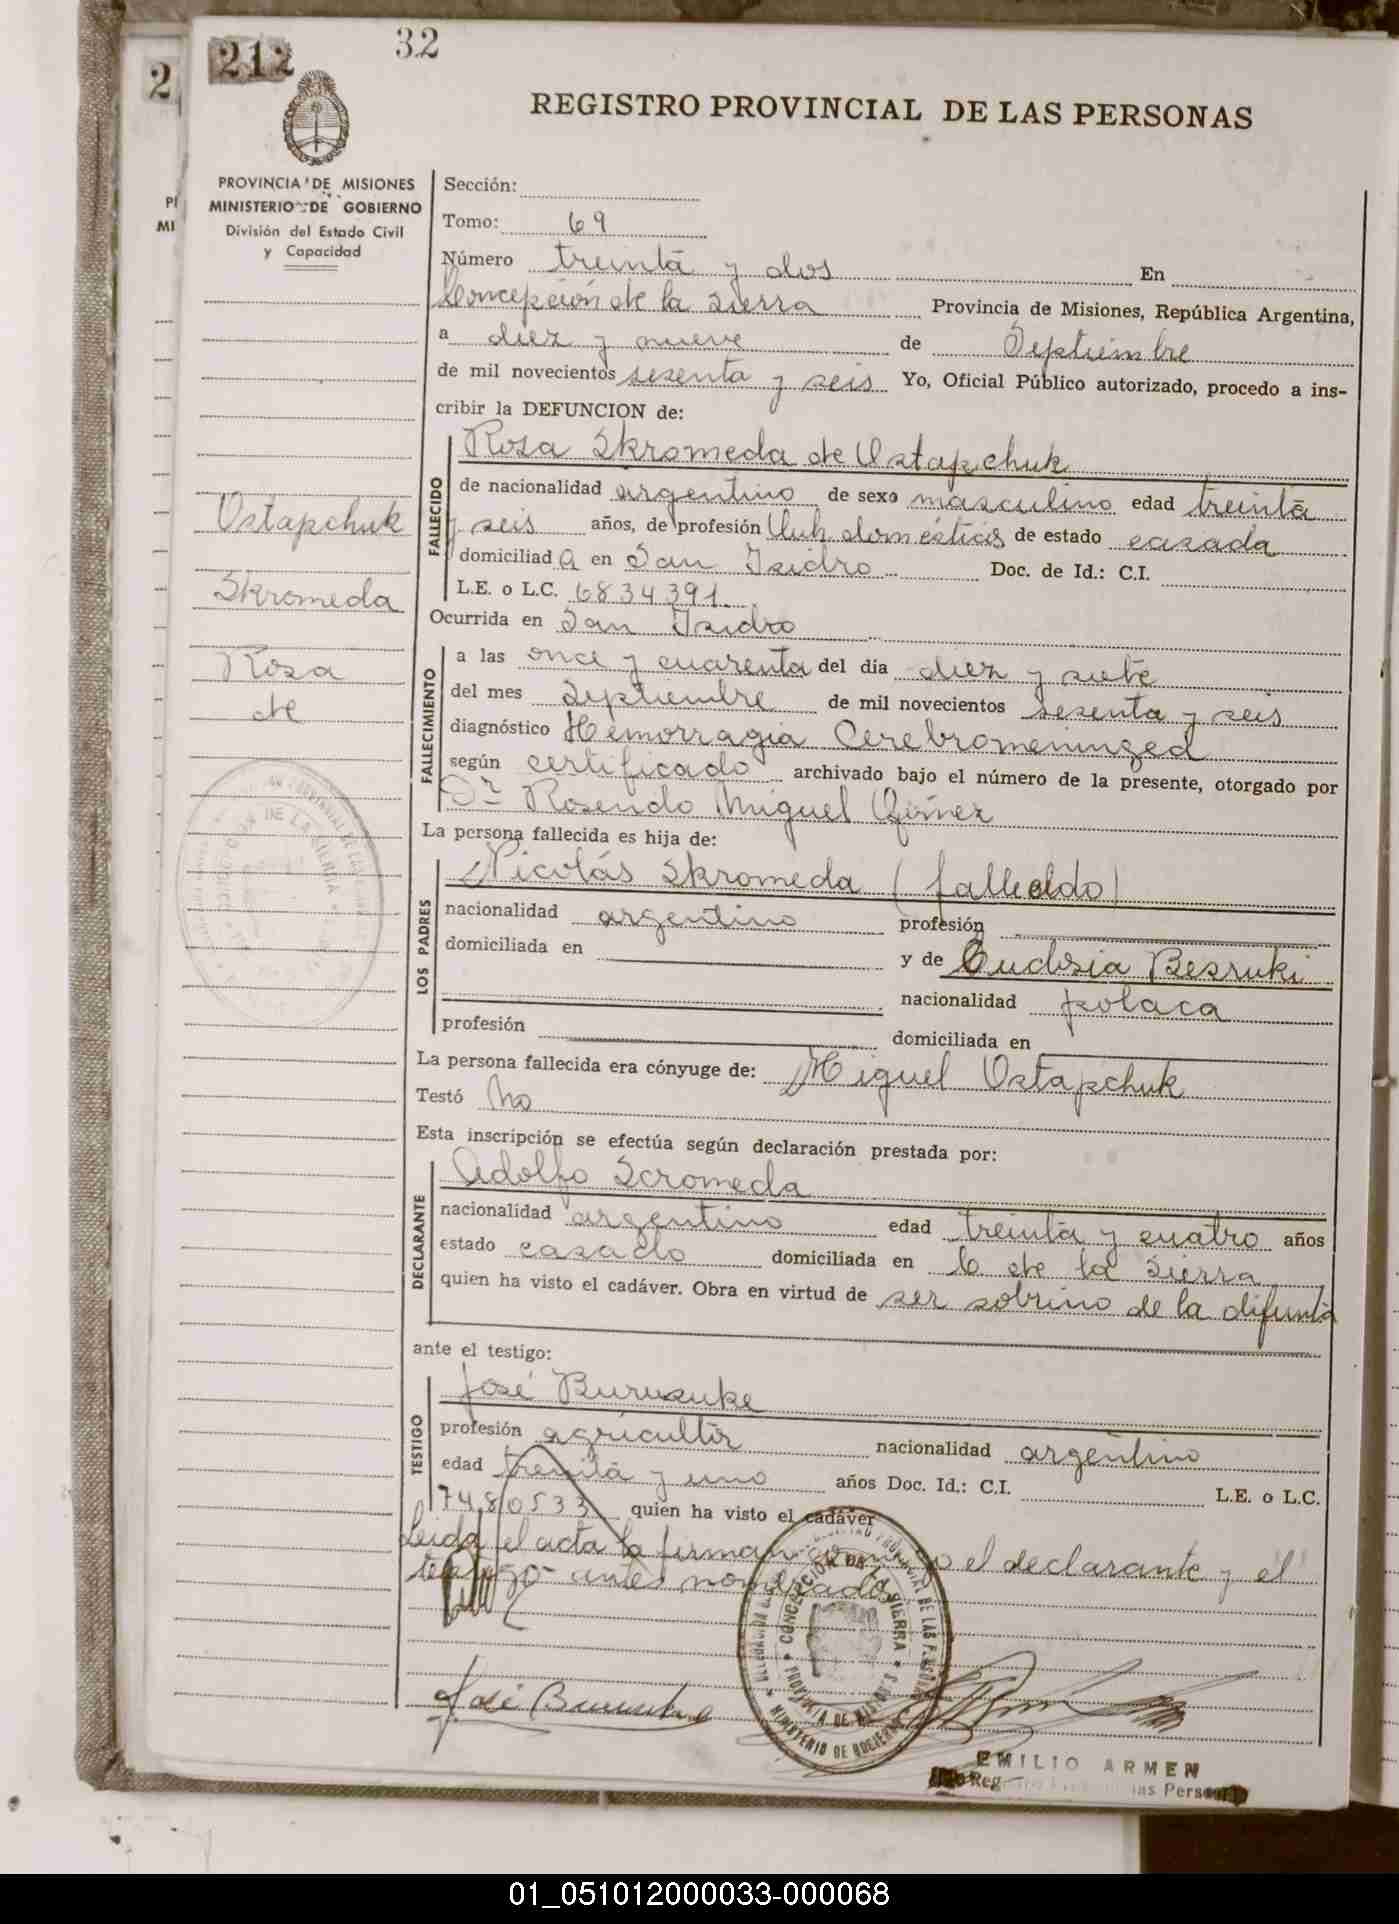 212
32
2
REGISTRO PROVINCIAL DE LAS PERSONAS
PROVINCIA DE MISIONES
MINISTERIO DE GOBIERNO
División del Estado Civil
y Capacidad
Sección:
Tomo: 69
Número treinta y dos En
Concepción de la Sierra Provincia de Misiones, República Argentina,
a diez y nueve de Septiembre
de mil novecientos sesenta y seis Yo, Oficial Público autorizado, procedo a ins-
cribir la DEFUNCION de:
FALLECIDO
Rosa Skromeda de Ostapchuk
de nacionalidad argentino de sexo masculino edad treinta
y seis años, de profesión Queh domésticos de estado casada
domiciliad a en San Isidro Doc. de Id.: C.I.
L.E. o L.C. 6834391
Ostapchuk
Skromeda
Rosa
de
Ocurrida en San Isidro
FALLECIMIENTO
a las once y cuarenta del día diez y siete
del mes Septiembre de mil novecientos sesenta y seis
diagnóstico Hemorragia Cerebromeningea
según certificado archivado bajo el número de la presente, otorgado por
Dr Rosendo Miguel Gómez
La persona fallecida es hija de:
LOS PADRES
Nicolás Skromeda (fallecido)
nacionalidad argentino profesión
domiciliada en y de Eudosia Besruki
nacionalidad polaca
profesión domiciliada en
La persona fallecida era cónyuge de: Miguel Ostapchuk
Testó No
Esta inscripción se efectúa según declaración prestada por:
DECLARANTE
Adolfo Scromeda
nacionalidad argentino edad treinta y cuatro años
estado casado domiciliada en C de la Sierra
quien ha visto el cadáver. Obra en virtud de ser sobrino de la difunta
ante el testigo:
TESTIGO
José
profesión agricultor nacionalidad argentino
edad treinta y uno años Doc. Id.: C.I. L.E. o L.C.
7480533 quien ha visto el cadáver
Leida el acta la firman conmigo el declarante y el
testigo antes nombrados
CONCEPCION DE LA SIERRA
PROVINCIA DE MISIONES
MINISTERIO DE GOBIERNO
José
EMILIO ARMEN
01_051012000033-000068